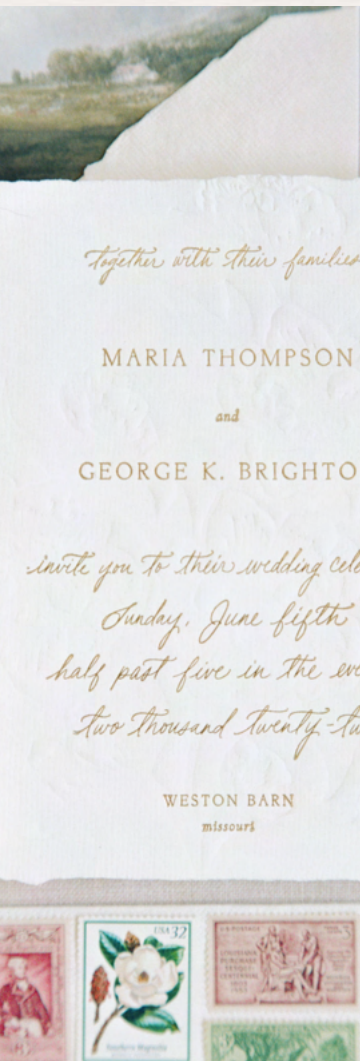 together with their families
MARIA THOMPSON
and
GEORGE K. BRIGHTO
invite you to their wedding cele
Sunday, June fifth
half past five in the eve
two thousand twenty-tw
WESTON BARN
missouri
USA 32
Southern Magnolia
U.S. POSTAGE